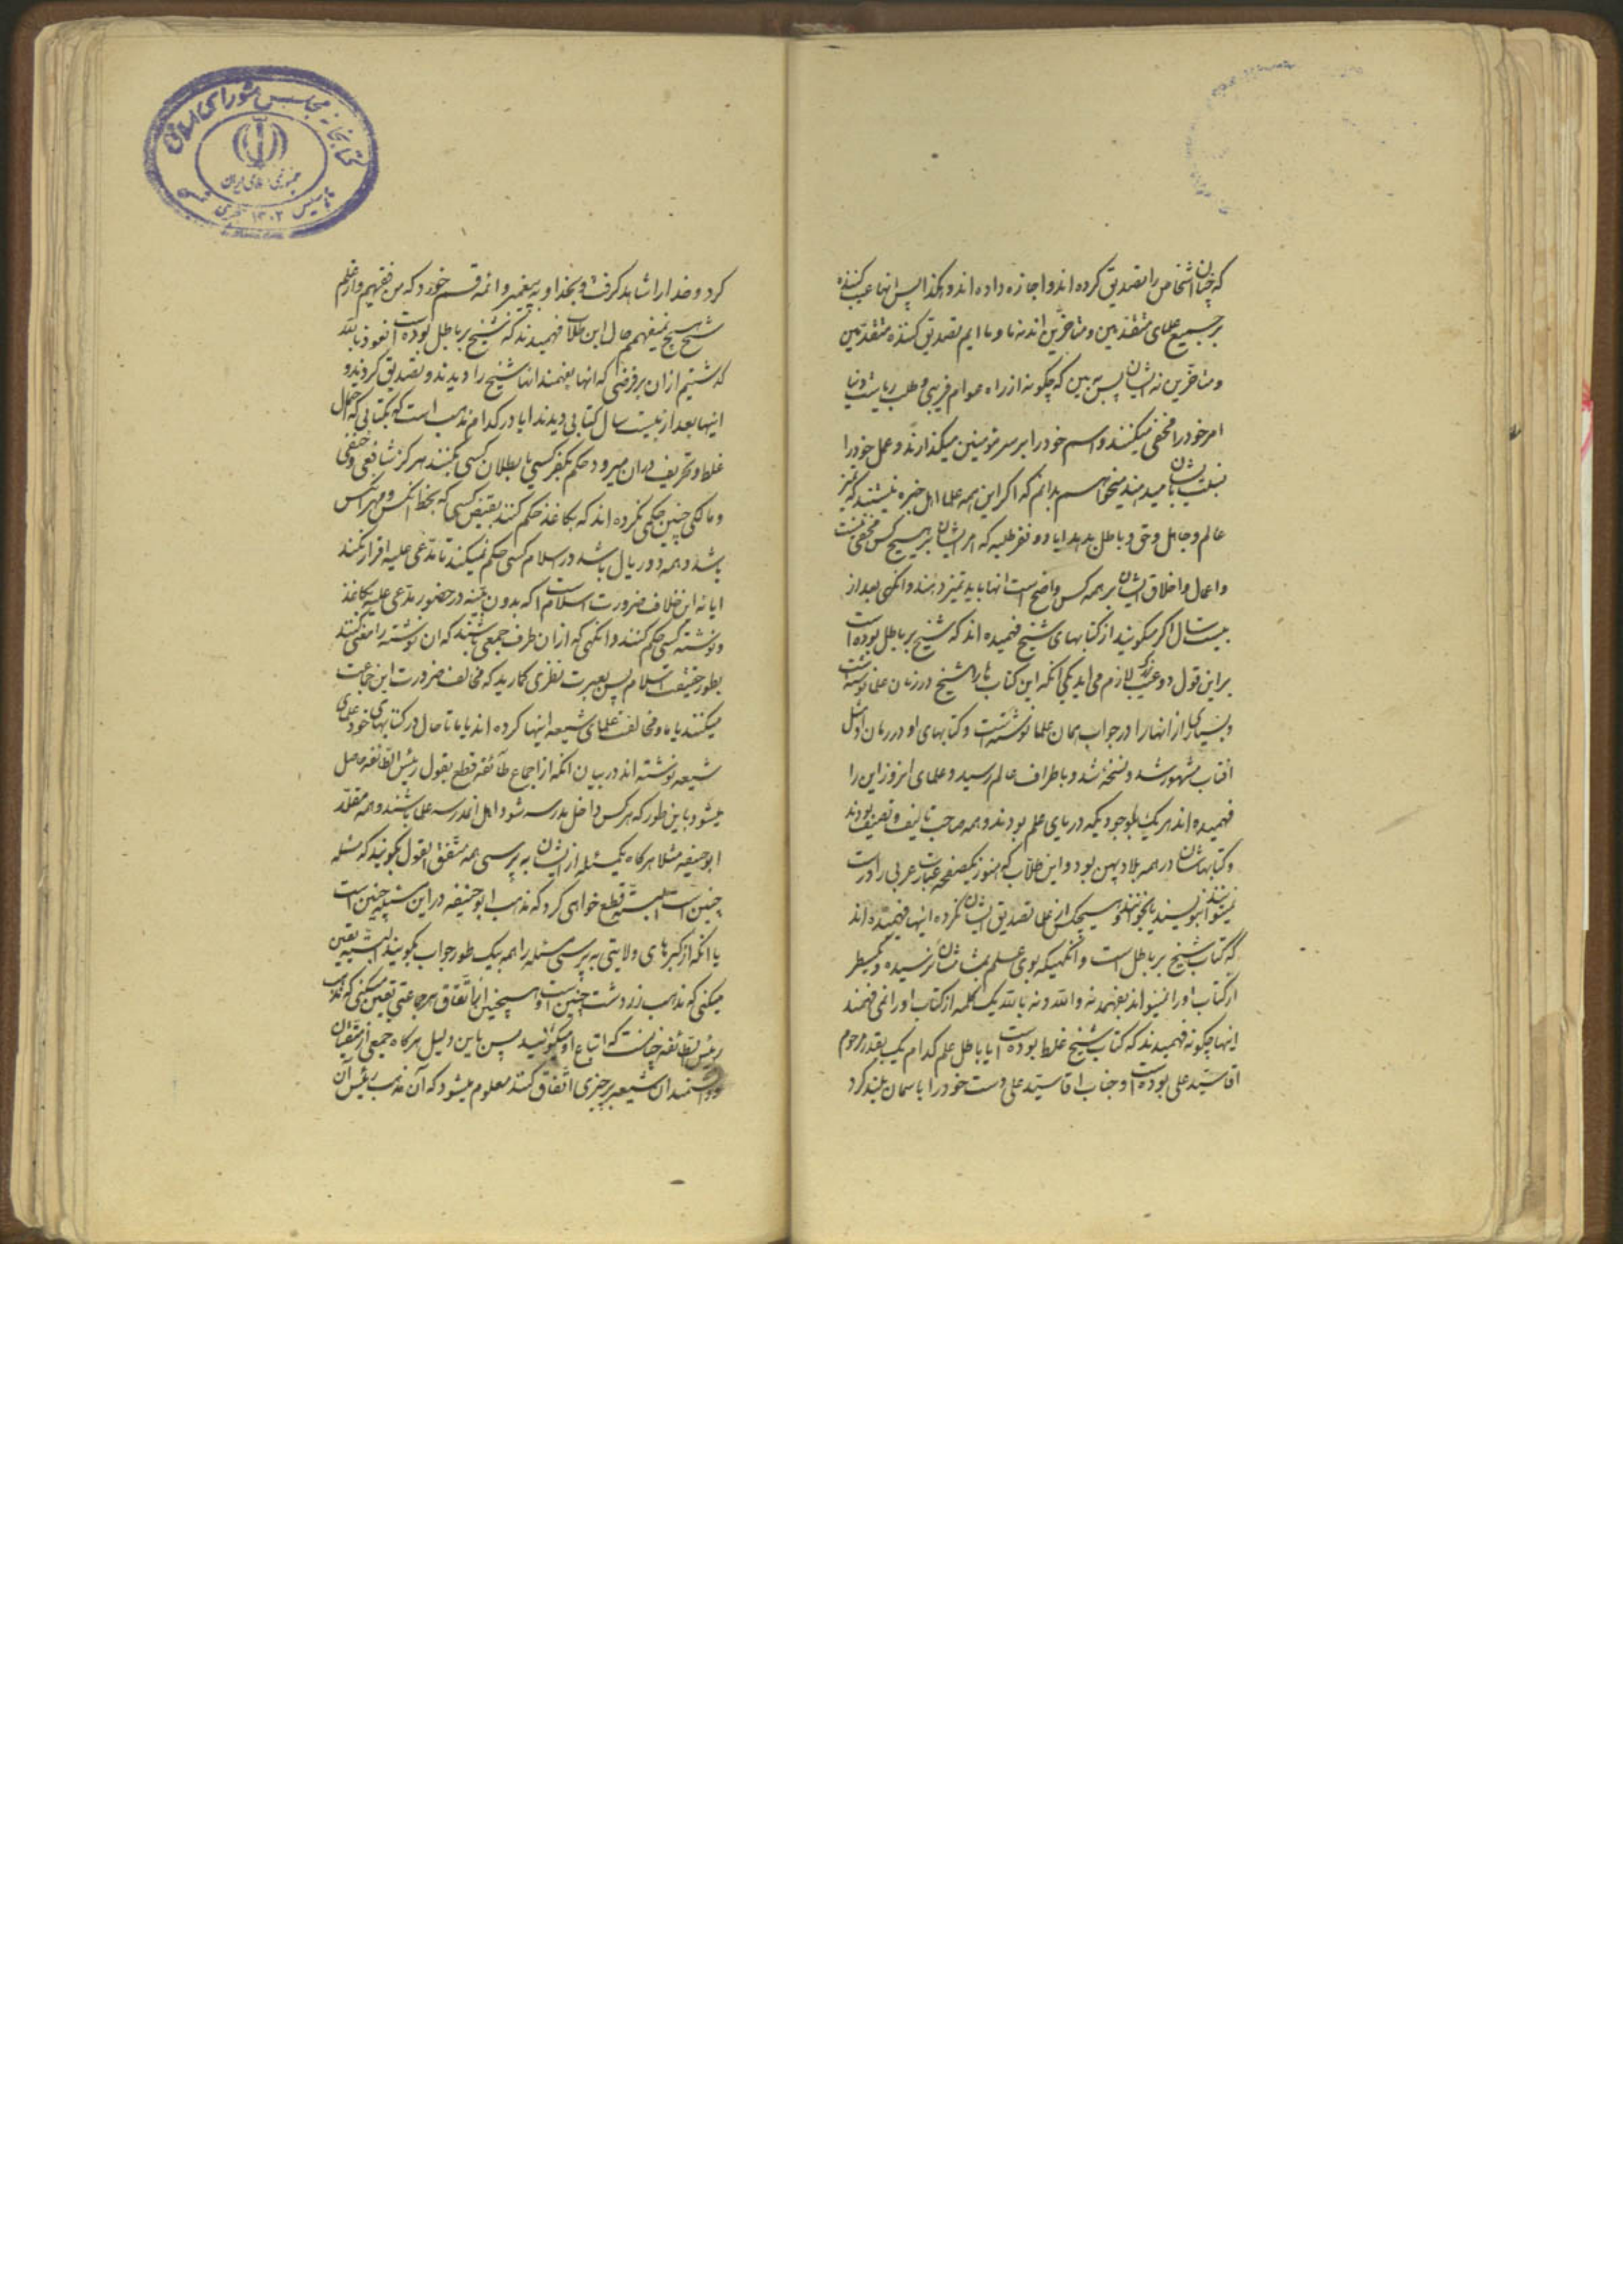 که چنان اشخاص را تصدیق کرده اند و اجازه داده اند و هکذا پس انها عیب کننده
بر جمیع علمای متقدمین و متاخرین اند نه ما و ما ایم تصدیق کننده متقدمین
و متاخرین نه ایشان پس به بین که چگونه از راه عوام فریبی و طلب ریاست دنیا
امر خود را مخفی میکنند و اسم خود را بر سر مؤمنین میگذارند و عمل خود را
نسبت بایشان میدهند میخواهم بدانم که اگر این همه علما اهل خبره نیستند که تمیز
عالم و جاهل و حق و باطل بدهند ایا دو نفر طلبه که امر ایشان بر هیچ کس مخفی نیست
و اعمال و اخلاق ایشان بر همه کس واضح است انها باید تمیز دهند و انگهی بعد از
بیست سال اگر میگویند از کتابهای شیخ فهمیده اند که شیخ بر باطل بوده است
بر این قول دو عیب بزرگ لازم می اید یکی انکه این کتاب ها را شیخ در زمان علما نوشته است
و بسیاری از انها را در جواب همان علما نوشته است و کتابهای او در زمان او مثل
افتاب مشهور شد و نسخه شد و باطراف عالم رسید و علمای انروز این را
فهمیده اند هر یک با وجودیکه دریای علم بودند و همه صاحب تالیف و تصنیف بودند
و کتابهاشان در همه بلاد پهن بود و این طلاب که هنوز یکصفحه عبارت عربی را درست
نمیتوانند بنویسند یا بخوانند و هیچکس از علما تصدیق ایشان نکرده اینها فهمیده اند
که کتاب شیخ بر باطل است و انگهیکه بوی علم بمشامشان نرسیده و یکسطر
از کتاب او را نمیتوانند بفهمند نه والله و نه بالله یک کلمه از کتاب او را نمی فهمند
اینها چگونه فهمیدند که کتاب شیخ غلط بوده است ایا باطل علم کدام یک بقدر مرحوم
اقا سید علی بوده است و جناب اقا سید علی دست خود را باسمان بلند کرد
کرد و خدا را شاهد گرفت و بخدا و به پیغمبر و ائمه قسم خورد که من فقیهم و از علم
شیخ هیچ نمیفهمم حال این طلاب فهمیدند که شیخ بر باطل بوده است نعوذ بالله
گذشتیم از ان بر فرضی که انها بفهمند انها شیخ را دیدند و تصدیق کردند و
اینها بعد از بیست سال کتابی دیدند ایا در کدام مذهب است که بکتابی که احتمال
غلط و تحریف در ان میرود حکم بکفر کسی یا بطلان کسی بکنند هرگز شافعی و حنفی
و مالکی چنین حکمی نکرده اند که بکاغذ حکم کنند بقبض کسی که بخط انکس و مهر انکس
باشد و همه دو ریال باشد در اسلام کسی حکم نمیکند تا مدعی علیه اقرار نکند
ایا نه این خلاف ضرورت اسلام است که بدون بینه در حضور مدعی علیه بکاغذ
و نوشته کسی حکم کنند و انگهی که از ان طرف جمعی باشند که ان نوشته را معنی کنند
بطور حقیقت اسلام پس بعبرت نظری کمارید که مخالفت ضرورت این جماعت
میکنند یا ما و مخالفت علمای شیعه اینها کرده اند یا ما تا حال در کتابهای خود علمای
شیعه نوشته اند در بیان انکه از اجماع طائفه قطع بقول رئیس الطائفه حاصل
میشود باین طور که هر کس داخل مدرسه شود و اهل ان مدرسه علما باشند و همه مقلد
ابو حنیفه مثلا هر گاه یک مسئله از ایشان به پرسی همه متفق القول بگویند که مسئله
چنین است البته قطع خواهی کرد که مذهب ابو حنیفه در این مسئله چنین است
یا انکه از گبرهای ولایتی به پرسی مسئله را همه بیک طور جواب بگویند البته یقین
میکنی که مذهب زردشت چنین است و همچنین از اتفاق هر جماعتی یقین میکنی که مذهب
رئیس الطائفه چنانست که اتباع او میگویند پس باین دلیل هر گاه جمعی از متقیان
و دانشمندان شیعه بر چیزی اتفاق کنند معلوم میشود که آن مذهب رئیس آن
کتابخانه مجلس شورای اسلامی
جمهوری اسلامی ایران
تاسیس ۱۳۰۲